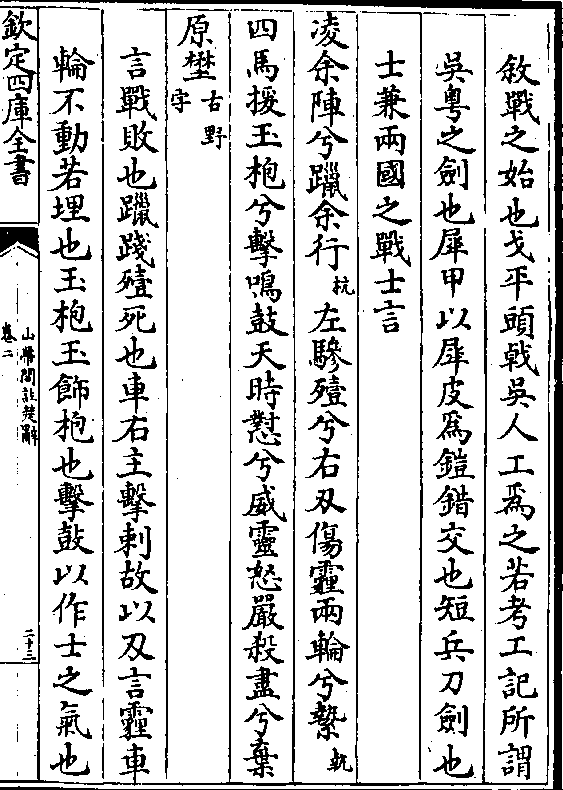 敘戰之始也戈平頭戟吳人工爲之若考工記所謂
吳粵之劍也犀甲以犀皮爲鎧錯交也短兵刀劍也
士兼兩國之戰士言
凌余陣兮躐余行杭左驂殪兮右刄傷霾兩輪兮縶執
四馬援玉枹兮擊鳴鼓天時懟兮威靈怒嚴殺盡兮棄
原壄古野字
言戰敗也躐踐殪死也車右主擊刺故以刄言霾車
輪不動若埋也玉枹玉飾枹也擊鼓以作士之氣也
欽定四庫全書
山帶閣註楚辭
卷二
二十三